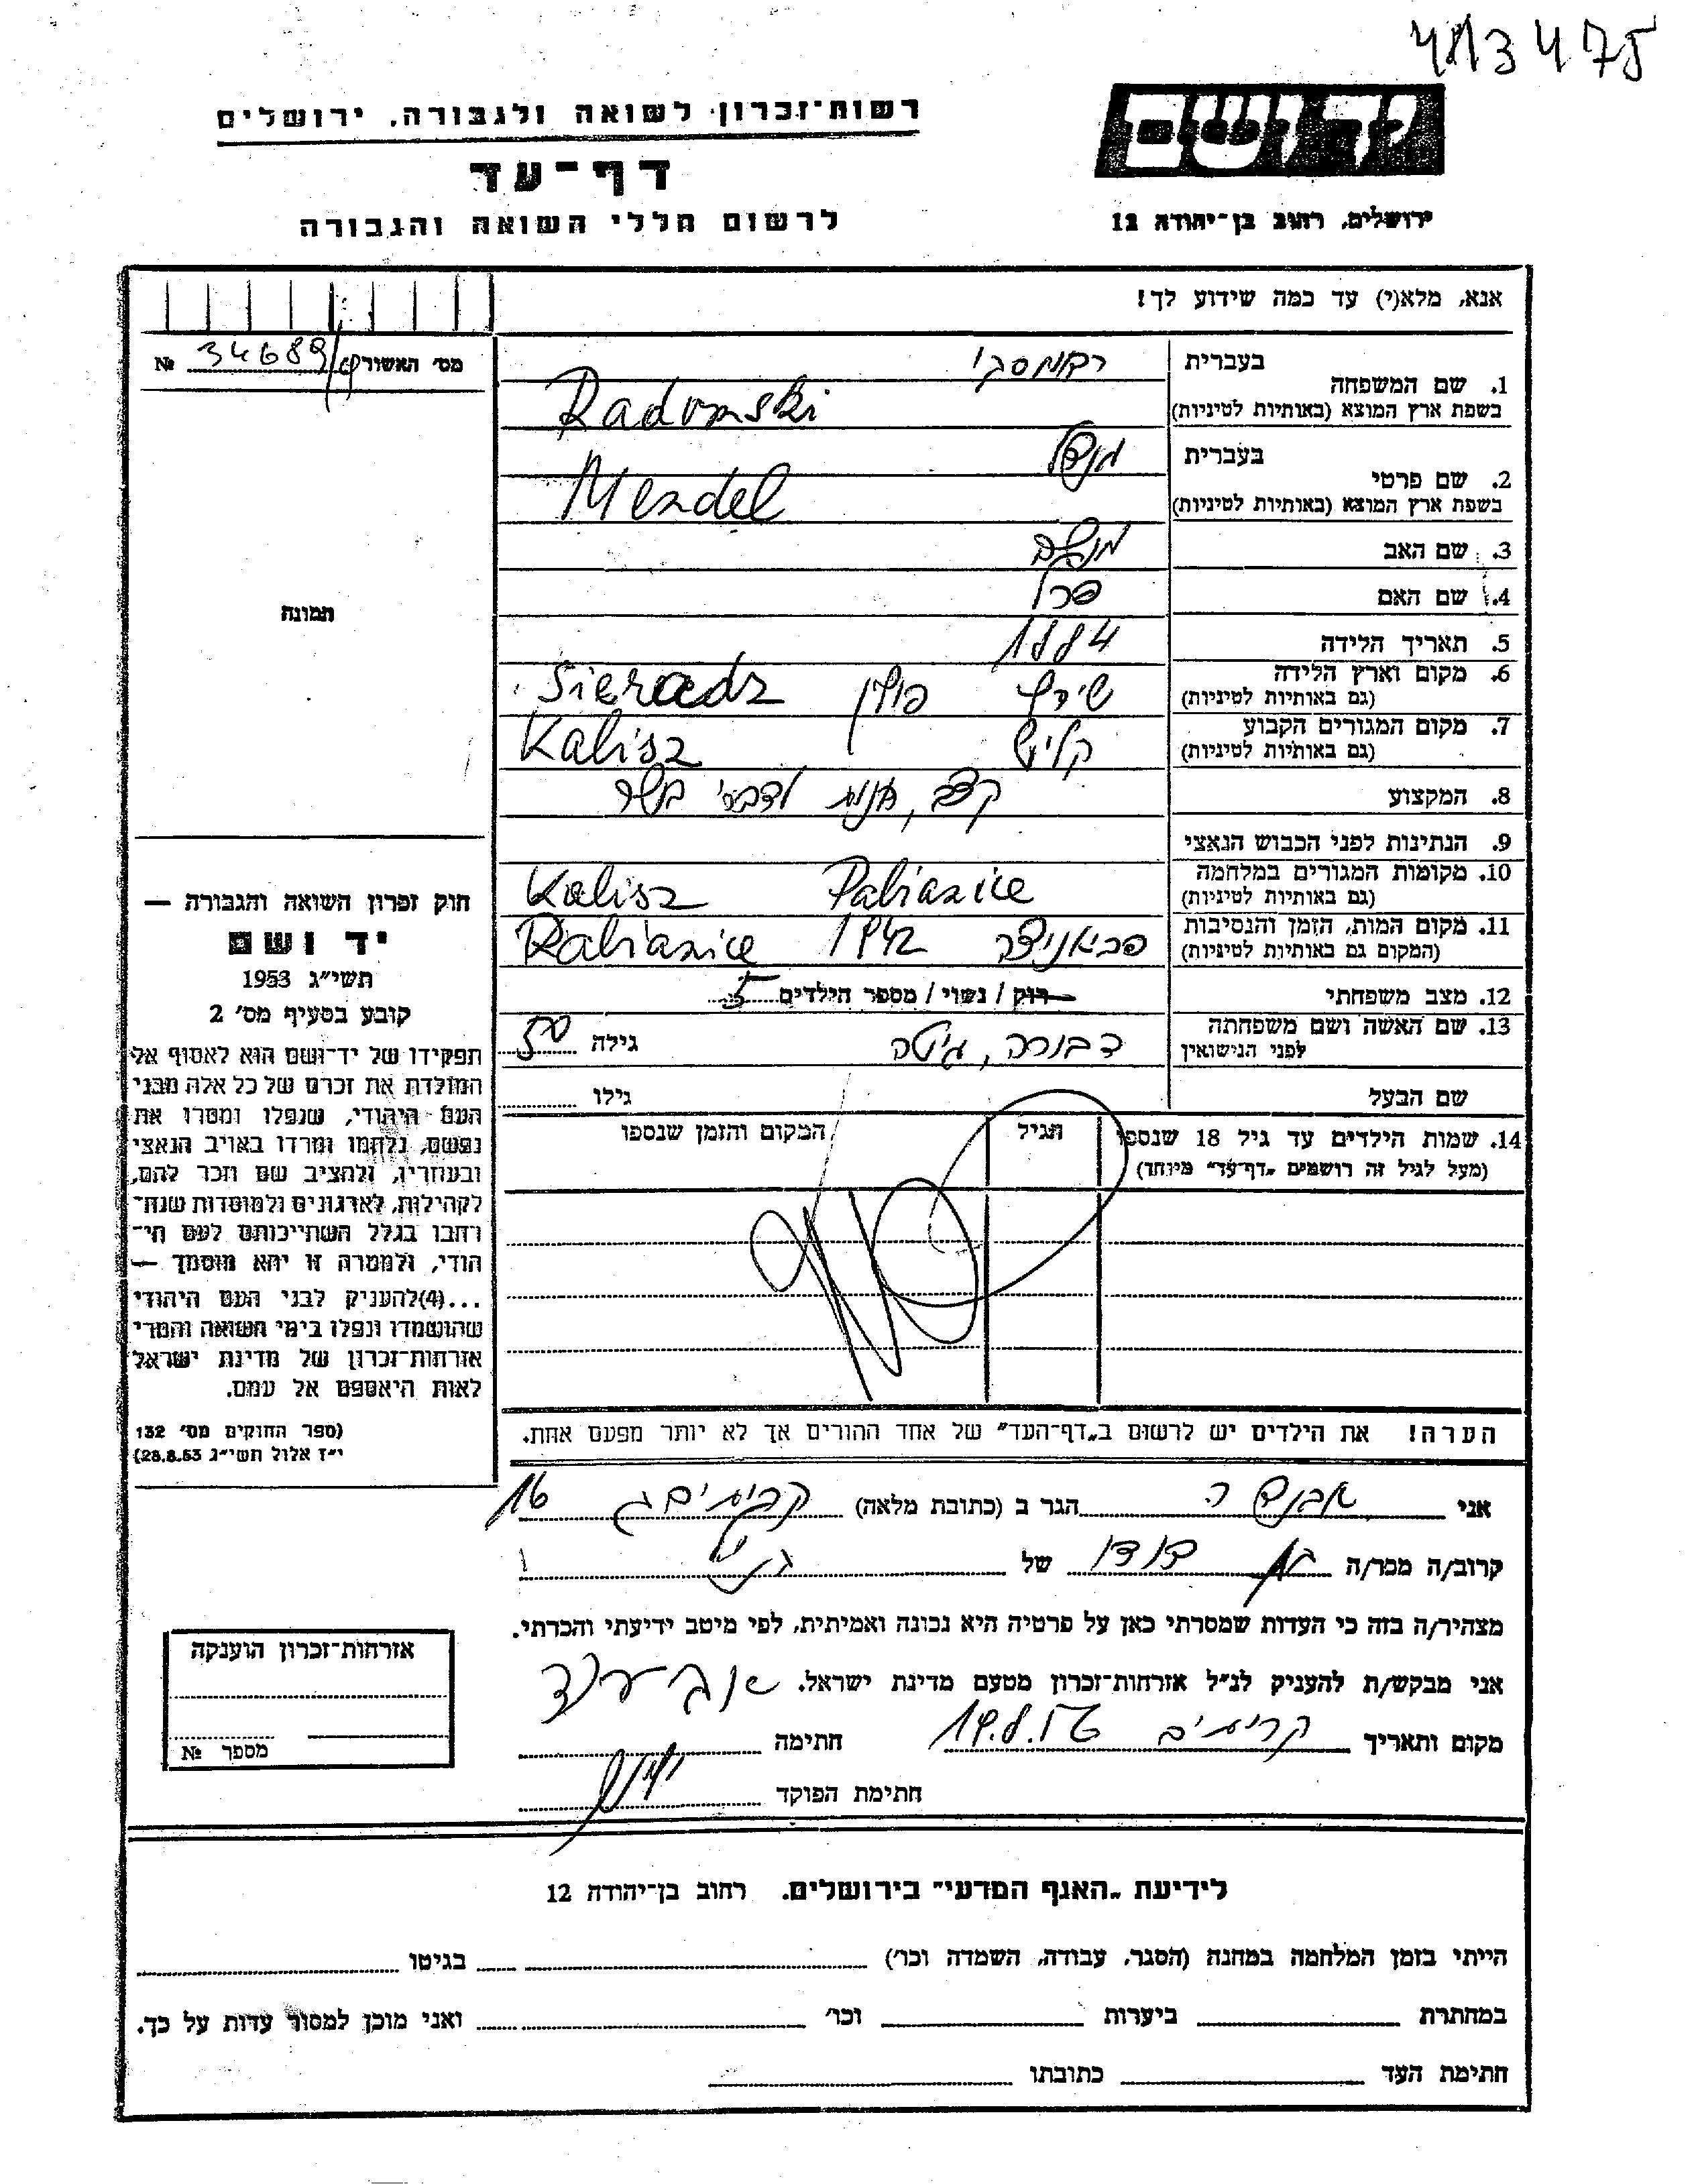 413475
רשות־זכרון לשואה ולגבורה, ירושלים
יד ושם
דף־עד
לרשום חללי השואה והגבורה
ירושלים, רחוב בן־יהודה 12
אנא, מלא(י) עד כמה שידוע לך!
מס׳ האשור № 34689
1. שם המשפחה
בעברית רדומסקי
בשפת ארץ המוצא (באותיות לטיניות) Radomski
2. שם פרטי
בעברית מנדל
בשפת ארץ המוצא (באותיות לטיניות) Mendel
3. שם האב
4. שם האם פרל
5. תאריך הלידה 1884
6. מקום וארץ הלידה
(גם באותיות לטיניות) פולין Sieradz
7. מקום המגורים הקבוע
(גם באותיות לטיניות) קליש Kalisz
8. המקצוע קצב, בשר
9. הנתינות לפני הכבוש הנאצי
10. מקומות המגורים במלחמה
(גם באותיות לטיניות) Kalisz Pabianice
11. מקום המות, הזמן והנסיבות
(המקום גם באותיות לטיניות) פביאניצה 1942 Pabianice
12. מצב משפחתי רוק / נשוי / מספר הילדים 5
13. שם האשה ושם משפחתה
לפני הנישואין דבורה, גיטה גילה 50
שם הבעל גילו
14. שמות הילדים עד גיל 18 שנספו
(מעל לגיל זה רושמים „דף־עד״ מיוחד)
הגיל
המקום והזמן שנספו
הערה! את הילדים יש לרשום ב„דף־העד״ של אחד ההורים אך לא יותר מפעם אחת.
תמונה
חוק זכרון השואה והגבורה —
יד ושם
תשי״ג 1953
קובע בסעיף מס׳ 2
תפקידו של יד־ושם הוא לאסוף אל
המולדת את זכרם של כל אלה מבני
העם היהודי, שנפלו ומסרו את
נפשם, נלחמו ומרדו באויב הנאצי
ובעוזריו, ולהציב שם וזכר להם,
לקהילות, לארגונים ולמוסדות שנח־
רבו בגלל השתייכותם לעם הי־
הודי, ולמטרה זו יהא מוסמך —
...(4) להעניק לבני העם היהודי
שהושמדו ונפלו בימי השואה והמרי
אזרחות־זכרון של מדינת ישראל
לאות היאספם אל עמם.
(ספר החוקים מס׳ 132
י״ז אלול תשי״ג 28.8.53)
אני הגר ב (כתובת מלאה) 16
קרוב/ה מכר/ה דודו של
מצהיר/ה בזה כי העדות שמסרתי כאן על פרטיה היא נכונה ואמיתית, לפי מיטב ידיעתי והכרתי.
אני מבקש/ת להעניק לנ״ל אזרחות־זכרון מטעם מדינת ישראל.
מקום ותאריך חתימה
חתימת הפוקד
אזרחות־זכרון הוענקה
מספר №
לידיעת „האגף המדעי״ בירושלים. רחוב בן־יהודה 12
הייתי בזמן המלחמה במחנה (הסגר, עבודה, השמדה וכו׳) בגיטו
במחתרת ביערות וכו׳ ואני מוכן למסור עדות על כך.
חתימת העד כתובתו